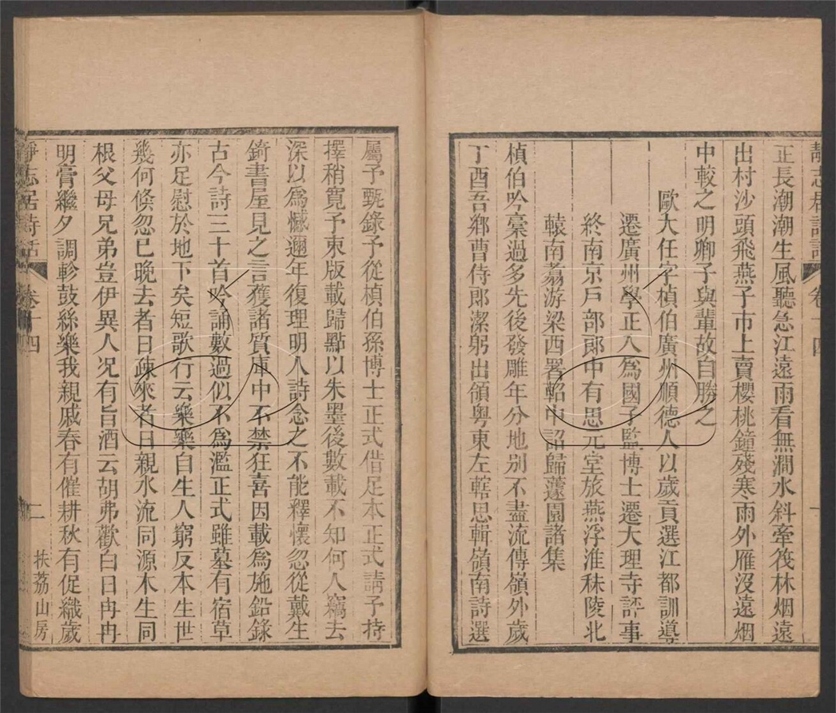 正長潮潮生風聽急江遠雨看無澗水斜牽筏林烟遠
出村沙頭飛燕子市上賣櫻桃鐘殘寒雨外雁沒遠烟
中較之明卿子與輩故自勝之
歐大任字楨伯廣州順德人以歲貢選江都訓導
遷廣州學正入為國子監博士遷大理寺評事
終南京戶部郎中有思元堂旅燕浮淮秣陵北
轅南翥游梁西署軺中詔歸蘧園諸集
楨伯吟稾過多先後發雕年分地別不盡流傳嶺外歲
丁酉吾鄉曹侍郎潔躬出領粵東左轄思輯嶺南詩選
屬予甄錄予從楨伯孫博士正式借足本正式請予持
擇稍寬予束版載歸點以朱墨後數載不知何人竊去
深以爲憾邇年復理明人詩念之不能釋懷忽從戴生
錡書屋見之言獲諸質庫中不禁狂喜因載爲施鉛錄
古今詩三十首吟誦數過似不爲濫正式雖墓有宿草
亦足慰於地下矣短歌行云樂樂自生人窮反本生世
幾何倏忽已晚去者日疎來者日親水流同源木生同
根父母兄弟豈伊異人况有旨酒云胡弗歡白日冉冉
明膏繼夕調軫鼓絲樂我親戚春有催耕秋有促織歲
靜志居詩話 卷十四 二 扶荔山房